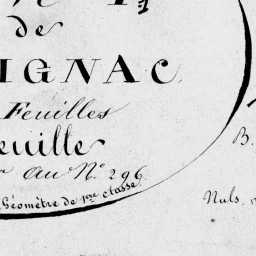 de
IGNAC
Feuilles
euille
au N° 296
Géomètre de 1ère classe.
B.
Nuls.